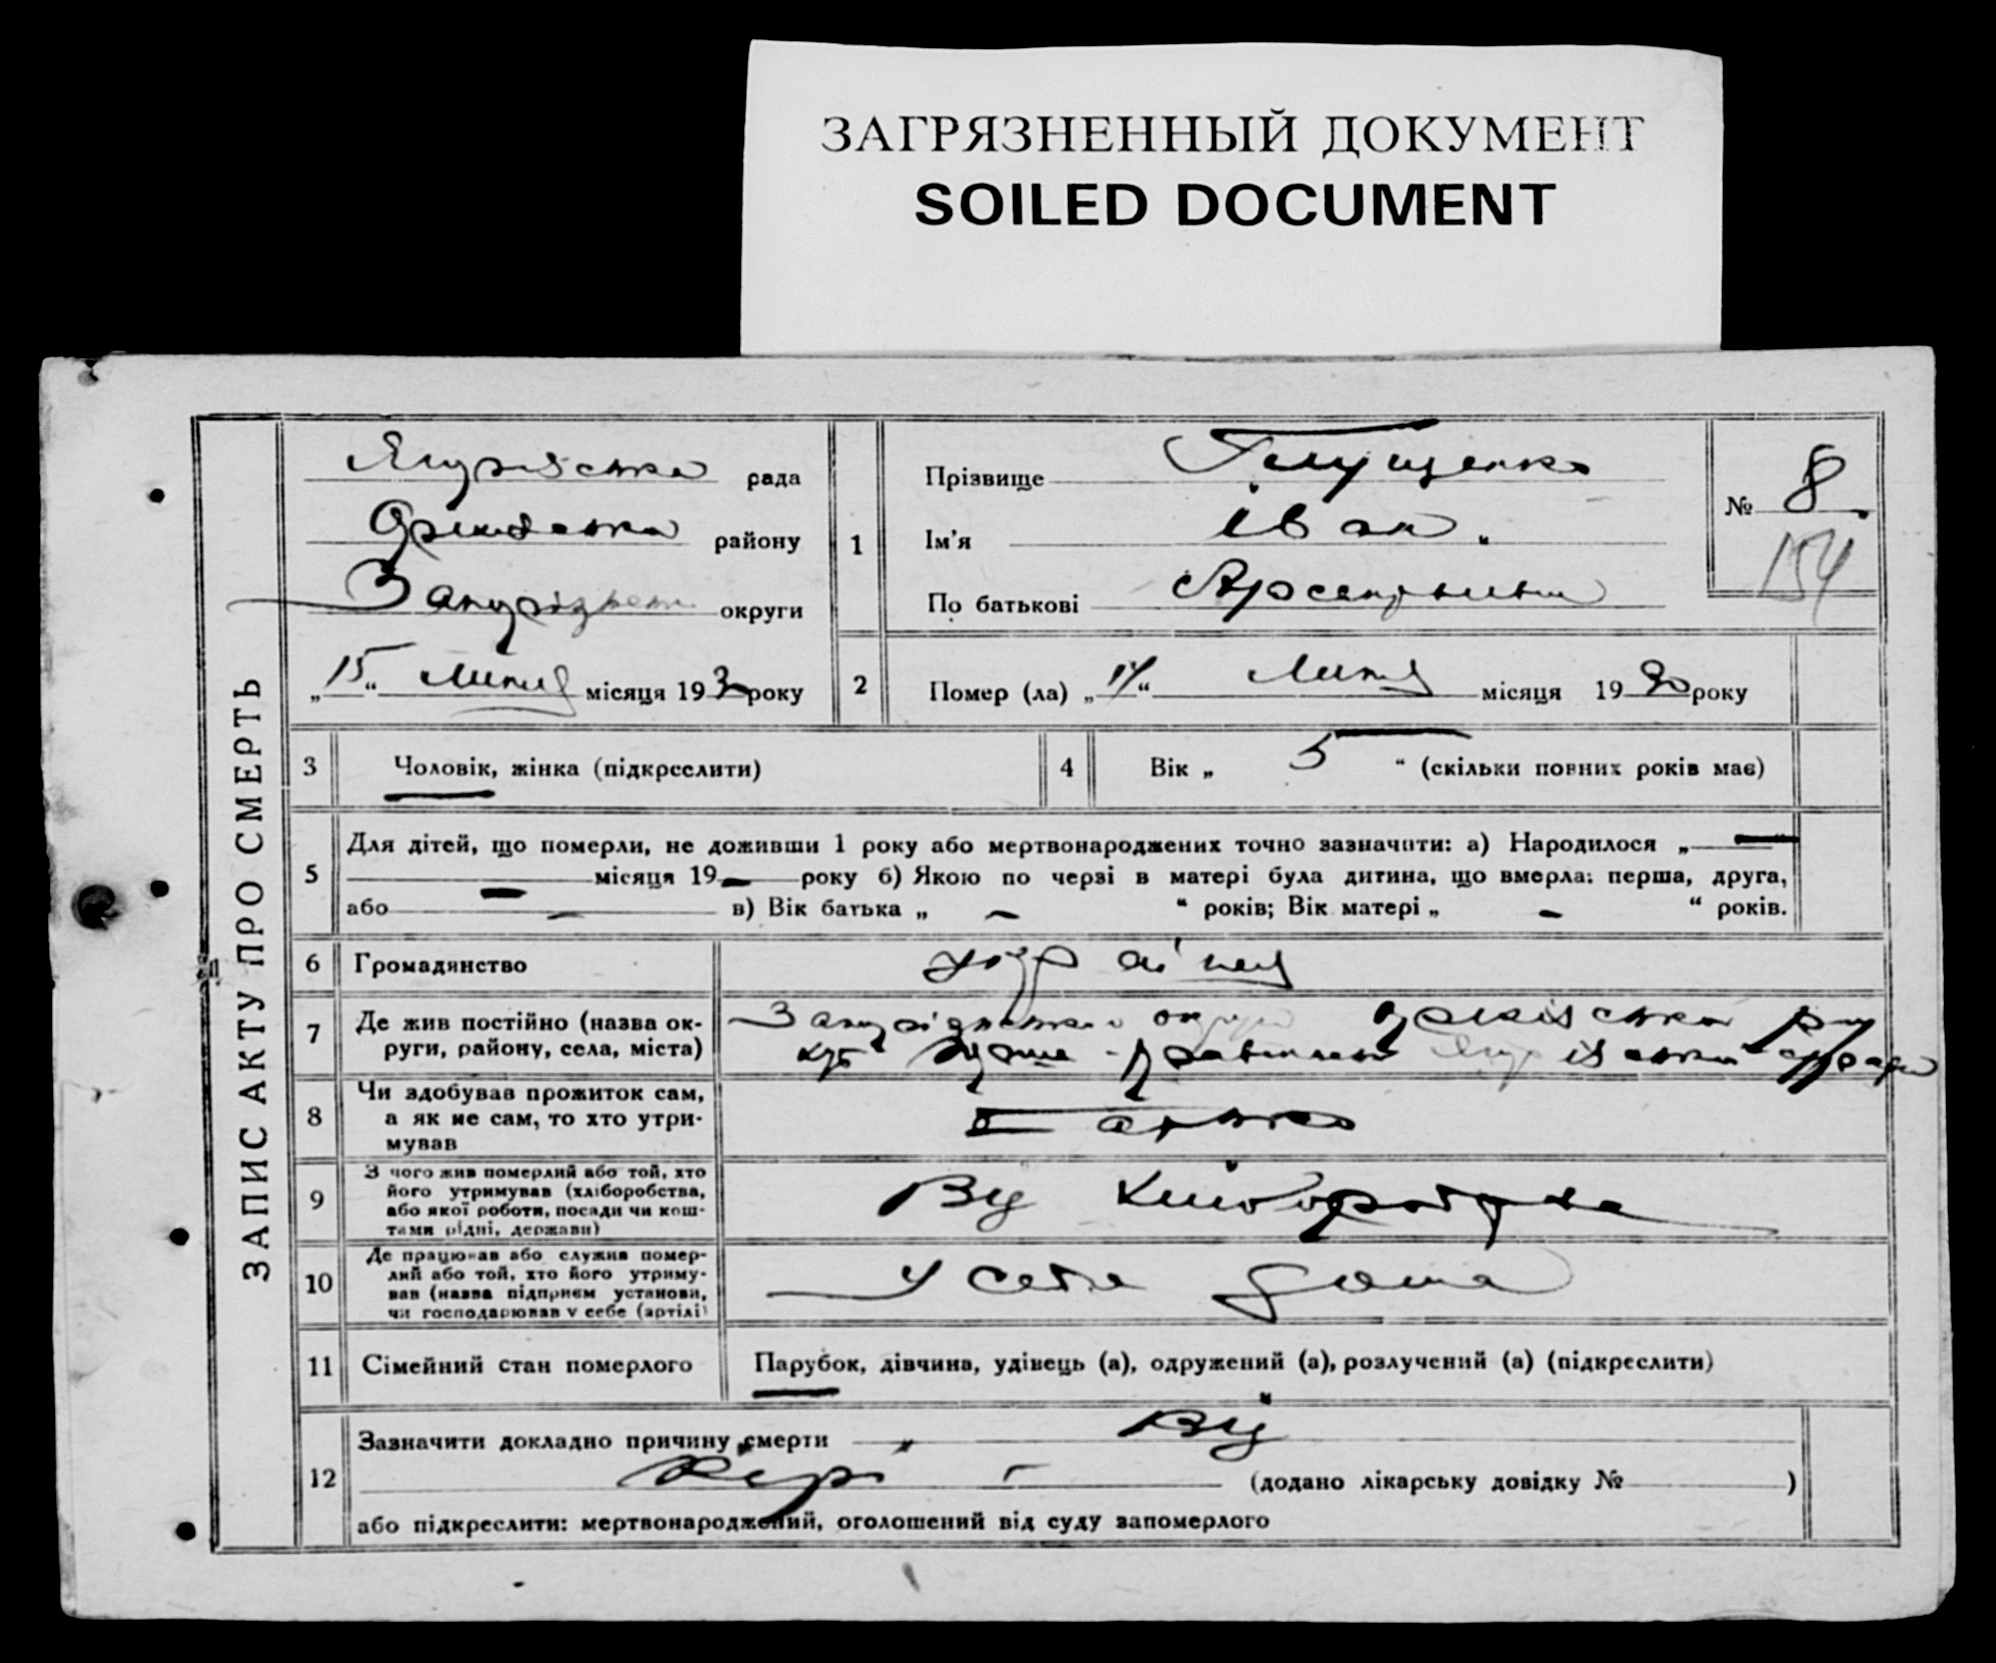 ЗАГРЯЗНЕННЫЙ ДОКУМЕНТ
SOILED DOCUMENT
ЗАПИС АКТУ ПРО СМЕРТЬ
рада
району
округи
„15“ Липня місяця 193 року
1
Прізвище Глущенко
Ім'я Іван
По батькові
№ 8
154
2
Помер (ла) „14“ Липня місяця 1930 року
3
Чоловік, жінка (підкреслити)
4
Вік „ 5 “ (скільки повних років має)
5
Для дітей, що померли, не доживши 1 року або мертвонароджених точно зазначити: а) Народилося „ — “
— місяця 19 — року б) Якою по черзі в матері була дитина, що вмерла: перша, друга,
або — в) Вік батька „ — “ років; Вік матері „ — “ років.
6
Громадянство
7
Де жив постійно (назва ок-
руги, району, села, міста)
8
Чи здобував прожиток сам,
а як не сам, то хто утри-
мував
Батько
9
З чого жив померлий або той, хто
його утримував (хліборобства,
або якої роботи, посади чи кош-
тами рідні, держави)
Від
10
Де працював або служив помер-
лий або той, хто його утриму-
вав (назва підприєм установи,
чи господарював у себе (артілі)
У себе дома
11
Сімейний стан померлого
Парубок, дівчина, удівець (а), одружений (а), розлучений (а) (підкреслити)
12
Зазначити докладно причину смерти Від
(додано лікарську довідку № )
або підкреслити: мертвонароджений, оголошений від суду запомерлого